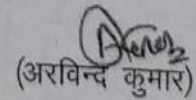 (अरविन्द कुमार)